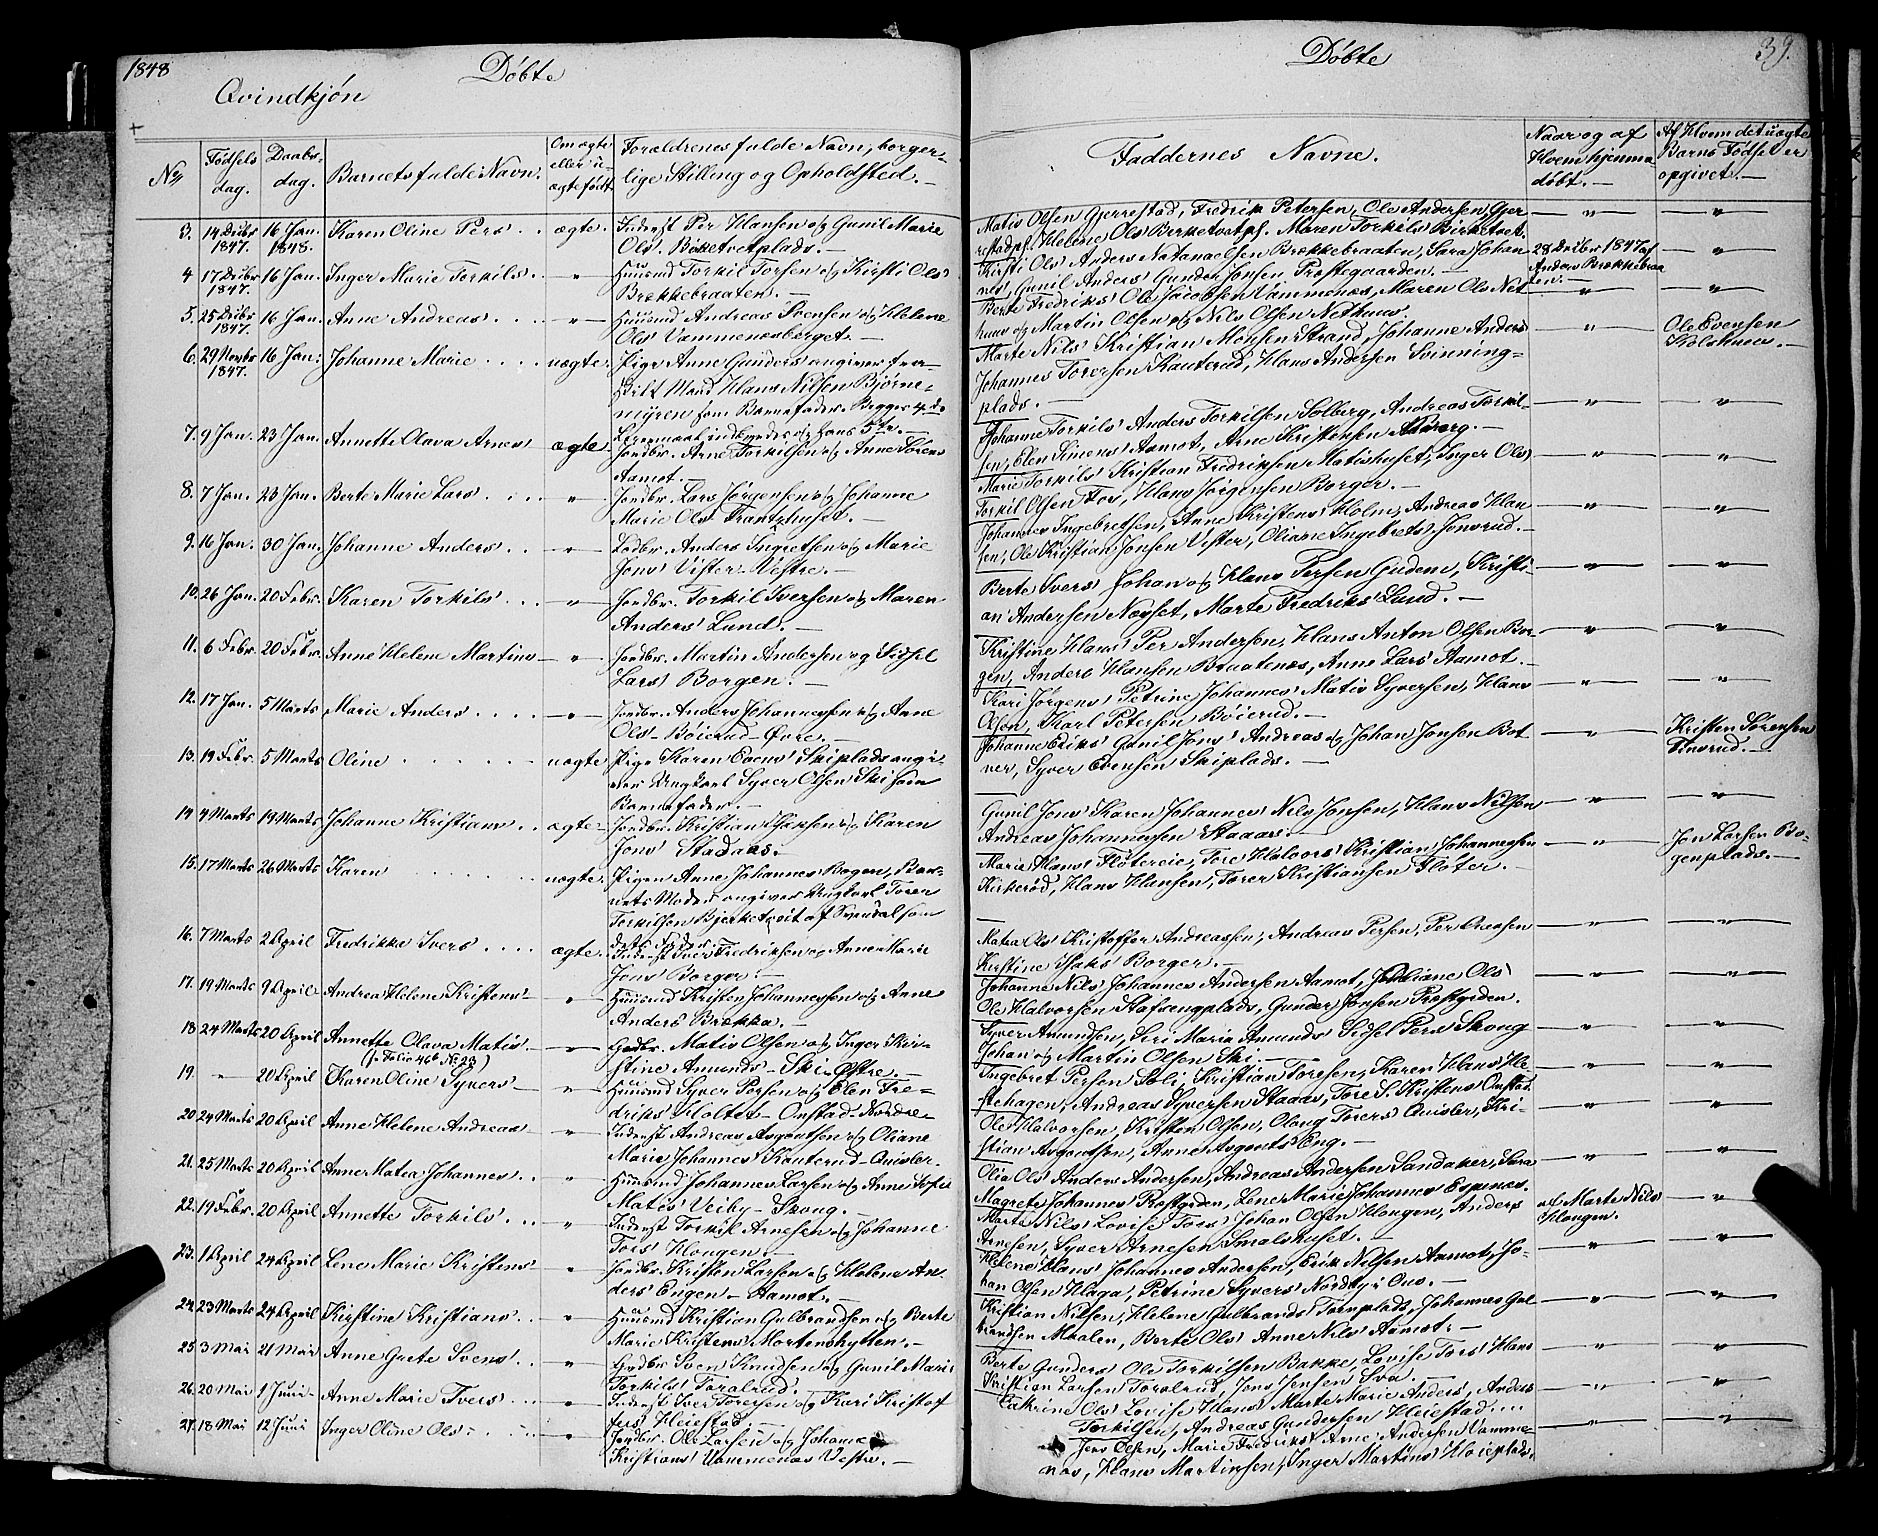 1848
Døbte
Qvindkjøn
No
Fødsels dag.
Daabs dag.
Barnets fulde Navn.
Om ægte eller uægte født
Forældrenes fulde Navn, borgerlige Stilling og Opholdsted.
3. 14 Decbr 1847. 16 Jan. 1848. Karen Oline Pers ægte. Inderst Per Hansen og Gunil Marie
Ols. Birketvetplads.
4 17 Decbr 1847. 16 Jan. Inger Marie Torkils " Huusmd Torkil Torsen og Kirsti Ols
Brækkebraaten.
5. 25 Decbr 1847. 16 Jan. Anne Andreas " Huusmd Andreas Svensen og Helene
Ols Vammenæsberget.
6. 29 Novbr 1847. 16 Jan. Johanne Marie uægte. Pige Anne Gunders angiver fra-
Gift Mand Hans Nilsen Bjørne-
myren som Barnefader. Begges 4de
Leiermaal
7. 9 Jan. 23 Jan. Annette Olava Arnes ægte. Jordbr. Arne Torkilsen og Anne Sørens
Aamot.
8. 7 Jan. 23 Jan. Berte Marie Lars " Jordbr. Lars Jørgensen og Johanne
Marie Ols Frantzhuset.
9. 16 Jan. 30 Jan. Johanne Anders " Lodbr. Anders Ingretsen og Marie
Jons Vister-Vestre.
10. 26 Jan. 20 Febr. Karen Torkils " Jordbr. Torkil Iversen og Maren
Anders Lund.
11. 6 Febr. 20 Febr. Anne Helene Martins " Jordbr. Martin Andersen og Sidsel
Lars Borgen.
12. 17 Jan. 5 Marts Marie Anders " Jordbr. Anders Johannessen og Anne
Ols Böierud-Övre.
13. 19 Febr. 5 Marts Oline uægte Pige Karen Evens Skiplads angi-
ver Ungkarl Syver Olsen Ski som
Barnefader.
14 4 Marts 19 Marts Johanne Kristians ægte Jordbr. Kristian Isaksen og Karen
Jons Stadaas.
15. 17 Marts 26 Marts Karen uægte. Pigen Anne Johannes Bogen, Bar-
nets Moder angiver Ungkarl Toren
Torkilsen Bjerketveit af som
dets Fader.
16. 7 Marts 2 April Fredrikke Ivers ægte. Inderst Iver Fredriksen og Anne Marie
Jons Borger.
17. 19 Marts 9 April Andrea Helene Kristens " Huusmd Kristen Johannessen og Anne
Anders Brække.
18 24 Marts 20 April Annette Olava Matis " Gaardbr. Matis Olsen og Inger Kir-
(f. Folio 46b No 23) stine Amunds-Ski-Østre.
19. " 20 April Karen Oline Syvers " Huusmd Syver Persen og Elen Fre-
driks Holter-Onstad Nordre
20 24 Marts 20 April Anne Helene Andreas " Inderst Andreas Asgautsen og Oliane
Marie Johannes Kauterud-Quisler.
21. 25 Marts 20 April Anne Matea Johannes " Huusmd Johannes Larsen og Anne Sofie
Matis Veiby-Skoug.
22. 19 Febr. 20 April Annette Torkils " Inderst Torkil Arnesen og Johanne
Tors Hougen.
23. 1 April 24 April Lene Marie Kristens " Jordbr. Kristen Larsen og Helene An-
ders Engen-Aamot.
24. 23 Marts 24 April Kirstine Kristians " Huusmd Kristian Gulbrandsen og Berte
Marie Kristens Mortenshytten.
25 3 Mai 21 Mai Anne Grete Svens " Gaardbr Sven Knudsen og Gunil Marie
Torkils Toralrud.
26. 20 Mai 1 Juni Anne Marie Ivers " Inderst Iver Toresen og Kari Kristof
fers Heiestad
27. 18 Mai 12 Juni Inger Oline Ols " Jordbr. Ole Larsen og Johanne
Kristians Vammenæs Vestre.
Døbte
39.
Faddernes Navne.
Naar og af Hvem hjemmedøbt.
Af Hvem det uægte Barns Fødsel er opgivet.
Matis Olsen Gjerrestad, Fredrik Petersen, Ole Andersen Gjer
restadpl. Helene Ols Birketvetpl. Maren Torkils Birketvet.
Kirsti Ols Anders Natanaelsen Brækkebraaten, Sara Johan
nes, Gunil Anders Gunder Jonsen Præstegaarden.
28 Decbr 1847 af Anders Brækkebraaten.
Berte Fredriks Ole Jacobsen Vammenæs, Maren Ols Net
huus og Martin Olsen og Nils Olsen Nethuus.
Marte Nils Kristian Monsen Strand, Johanne Anders
Johannes Torersen Kauterud, Hans Andersen Svinning-
plads.
Ole Evensen
Johanne Torkils Anders Torkilsen Solberg, Andreas Torkil-
sen, Elen Simens Aamot, Arne Kristensen
Marie Torkils Kristian Fredriksen Matishuset, Inger Ols
Torkil Olsen Fos, Hans Jørgensen Borger.
Johannes Ingebretsen, Anne Kristens Holm, Andreas Han
sen, Ole Kristian Jonsen Vister, Oliane Ingebrets Jonsrud.
Berte Ivers Johan og Hans Persen Gudem, Kristi-
an Andersen Neyset, Marte Fredriks Lund.
Kristine Hans Per Andersen, Hans Anton Olsen Bor-
gen, Anders Hansen Braatenæs, Anne Lars Aamot.
Kari Jørgens Petrine Johannes Matis Syversen, Hans
Olsen, Karl Petersen Böierud.
Johanne Eriks Gunil Jons Andreas og Johan Jonsen Bot
ner, Syver Evensen Skiplads.
Kristen Sørensen Finsrud.
Gunil Jons Karen Johannes Nils Jonsen, Hans Nilsen
Andreas Johannessen Staaas.
Marie Hans Fløtereie, Tore Halvors Kristian Johannessen
Kirkerød, Hans Hansen, Torer Kristiansen Fløter.
Jon Larsen Bo-
genplads.
Matea Ols Kristoffer Andreassen, Andreas Persen, Per Olesen
Kirstine Isaks Borger.
Johanne Nils Johannes Andersen Aamot, Juliane Ols
Ole Halvorsen Stafsengplads, Gunder Jonsen Præstgrden.
Syver Amundsen, Siri Maria Amunds Sidsel Pers Skoug
Johan og Martin Olsen Ski.
Ingebret Persen Soli, Kristian Toresen, Karen Hans He-
stehagen, Andreas Syversen Staaas, Tore S. Kristens Onstad
Ole Halvorsen, Kristen Olsen, Oloug Torers Quisler, Kri-
stian Asgautsen, Anne Asgauts Eng.
Olia Ols Anders Andersen, Andreas Andersen Sandaker, Sara
Magrete Johannes Præstgrden, Lene Marie Johannes Espenes.
Marte Nils Lovise Tors Johan Olsen Hougen, Anders
Arnesen, Syver Arnesen Smalshuset.
af Marte Nils Hougen.
Helene Hans Johannes Andersen, Erik Nilsen Aamot, Jo-
han Olsen Haga, Petrine Syvers Nordby i Aas.
Kristian Nilsen, Helene Gulbrands Tomplads, Johannes Gul
brandsen Maalen, Berte Ols Anne Nils Aamot.
Berte Gunders Ole Torkilsen Bakke, Lovise Tors Hans
Kristian Larsen Toralrud, Jens Jensen Sva.
Catrine Ols Lovise Hans Marte Marie Anders, Anders
Torkilsen, Andreas Gundersen Heiestad.
Jens Olsen, Marie Fredriks Arne Andersen Vamme-
næs, Hans Martinsen, Inger Martins Hoieplads.